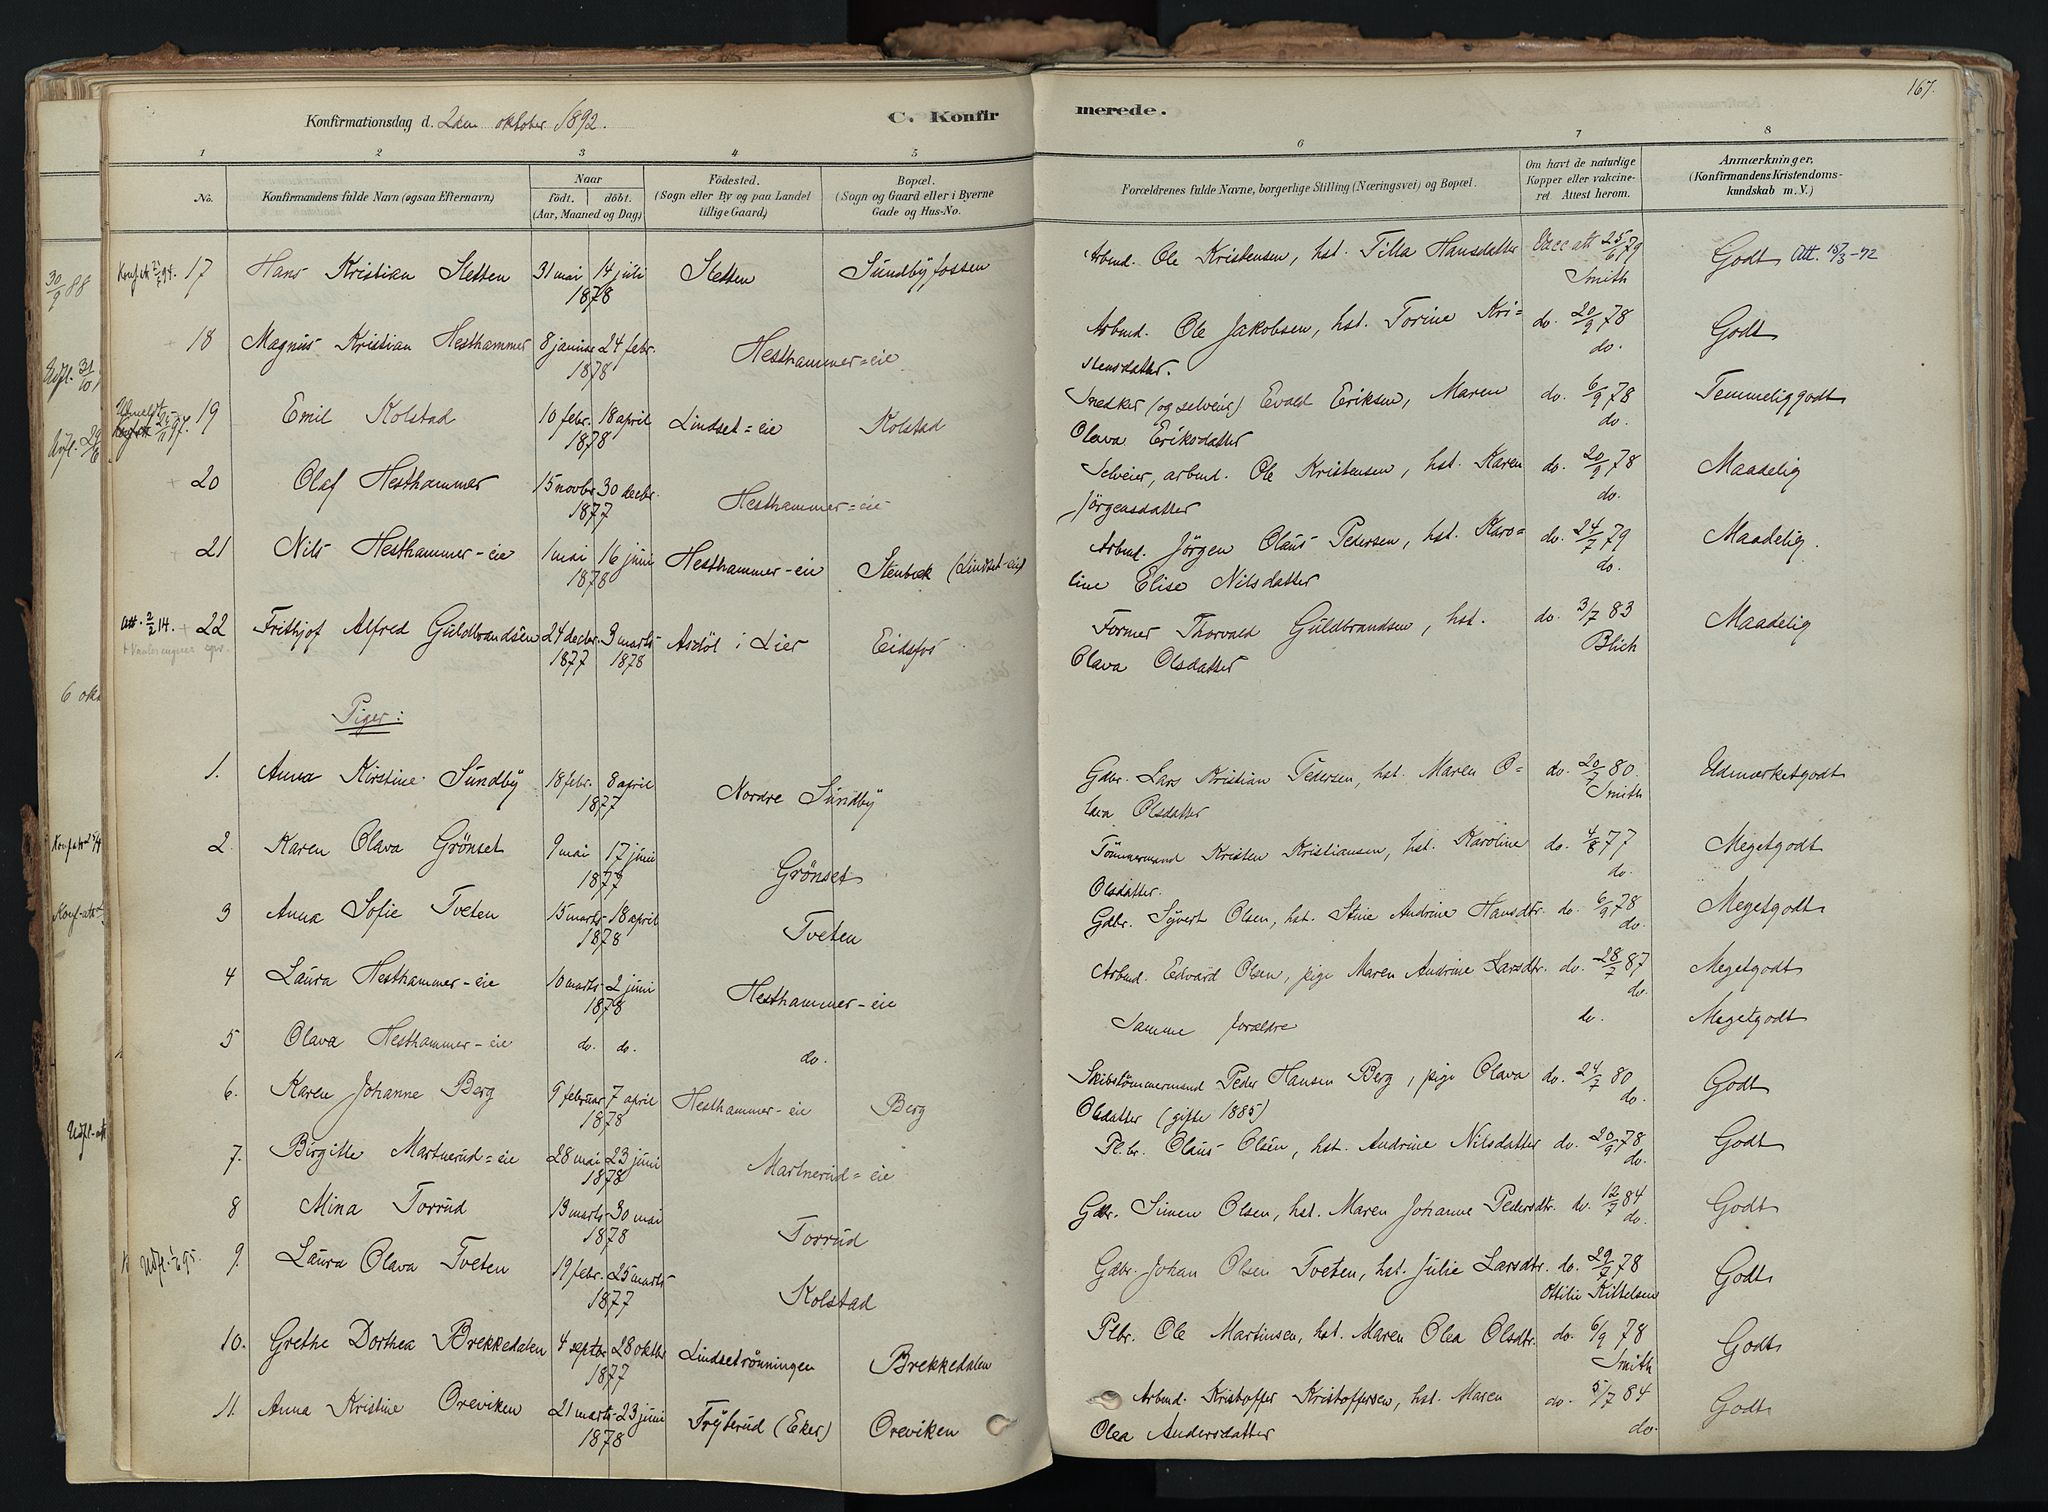 167.
Konfirmationsdag d. 2den oktober 1892. C. Konfirmerede.
1 2 3 4 5 6 7 8
No. Konfirmandens fulde Navn (ogsaa Efternavn) Naar født. døbt. (Aar, Maaned og Dag) Födested. (Sogn eller By og paa Landet tillige Gaard) Bopæl. (Sogn og Gaard eller i Byerne Gade og Hus-No. Forældrenes fulde Navne, borgerlige Stilling (Næringsvei) og Bopæl. Om havt de naturlige Kopper eller vakcineret. Attest herom. Anmærkninger, (Konfirmandens Kristendomskundskab m. V.)
17 Hans Kristian Sletten 31 mai 14 juli 1878 Sletten Sundbyfossen Arbmd. Ole Kristensen, hst. Tilla Hansdatter Vacc att 25/6 79 Smith Godt Att. 15/3-72
18 Magnus Kristian Hesthammer 8 januar 24 febr. 1878 Hesthammer=eie Arbmd. Ole Jakobsen, hst. Torine Kri=
stensdatter. do. 20/9 78 do. Godt
19 Emil Kolstad 10 febr. 18 april 1878 Lindset=eie Kolstad Snedker (og selveier) Evald Eriksen, Maren
Olava Eriksdatter do. 6/9 78 do. Temmeliggodt
20 Olaf Hesthammer 15 novbr. 30 decbr. 1877 Hesthammer=eie Selveier, arbmd. Ole Kristensen, hst. Karen
Jörgensdatter do. 20/9 78 do. Maadelig
21 Nils Hesthammer-eie 1 mai 16 juni 1878 Hesthammer-eie Stenbek (Lindset-eie) Arbmd. Jörgen Claus Pedersen, hst. Karo=
line Elise Nilsdatter do. 24/7 79 do. Maadelig.
Att. 2/2 14. 22 Frithjof Alfred Guldbrandsen 24 decbr. 1877 3 marts 1878 Asdöl i Lier Eidsfos Former Thorvald Guldbrandsen, hst.
Olava Olsdatter do. 3/7 83 Blich Maadelig
Piger:
1. Anna Kirstine Sundby 18 febr. 8 april 1877 Nordre Sundby Gdbr. Lars Kristian Pedersen, hst. Maren O=
lava Olsdatter do. 20/7 80. Smith Udmærketgodt
2. Karen Olava Grönset 9 mai 17 juni 1877 Grönset Tömmermand Kristen Kristiansen, hst. Karoline
Olsdatter. do. 4/8 77 do. Megetgodt
3 Anna Sofie Tveten 15 marts 18 april 1878 Tveten Gdbr. Syvert Olsen, hst. Stine Andrine Hansdtr. do. 6/9 78 do. Megetgodt
4 Laura Hesthammer-eie 10 marts 2 juni 1878 Hesthammer-eie Arbmd. Edvard Olsen, pige Maren Andrine Larsdtr. do. 28/7 87 do. Megetgodt
5 Olava Hesthammer-eie do. do. do. Samme forældre do. Megetgodt
6. Karen Johanne Berg 9 februar 7 april 1878 Hesthammer-eie Berg Skibstömmermand Peder Hansen Berg, pige Olava
Olsdatter (gifte 1885) do. 24/7 80 do. Godt
7. Birgitte Martnerud=eie 28 mai 23 juni 1878 Martnerud=eie Pl.br. Claus Olsen, hst. Andrine Nilsdatter do. 20/9 78 do. Godt
8 Mina Torrud 13 marts 30 mai 1878 Torrud Gdbr. Simen Olsen, hst. Maren Johanne Pedersdtr. do. 12/7 84 do. Godt
9. Laura Olava Tveten 19 febr. 25 marts 1877 Kolstad Gdbr. Johan Olsen Tveten, hst. Julie Larsdtr. do. 29/7 78 Ottilie Kittelsen Godt
10. Grethe Dorthea Brekkedalen 4 septbr 28 oktbr 1877 Lindsetrönningen Brekkedalen Plbr. Ole Martinsen, hst. Maren Olea Olsdtr. do. 6/9 78 Smith Godt
11. Anna Kristine Oreviken 21 marts 23 juni 1878 Fryterud (Eker) Oreviken Arbmd. Kristoffer Kristoffersen, hst. Maren
Olea Andersdatter do. 5/7 84 do. Godt